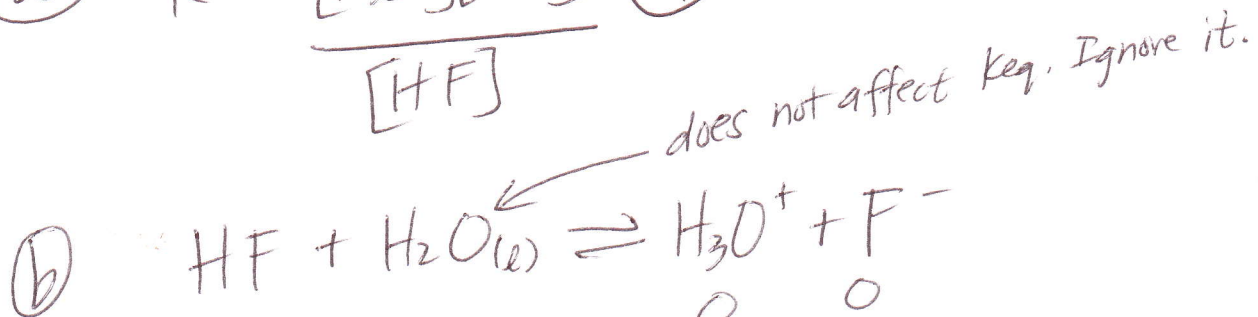 [HF]
does not affect Keq. Ignore it.
ⓑ HF + H₂O(l) ⇌ H₃O⁺ + F⁻
O O